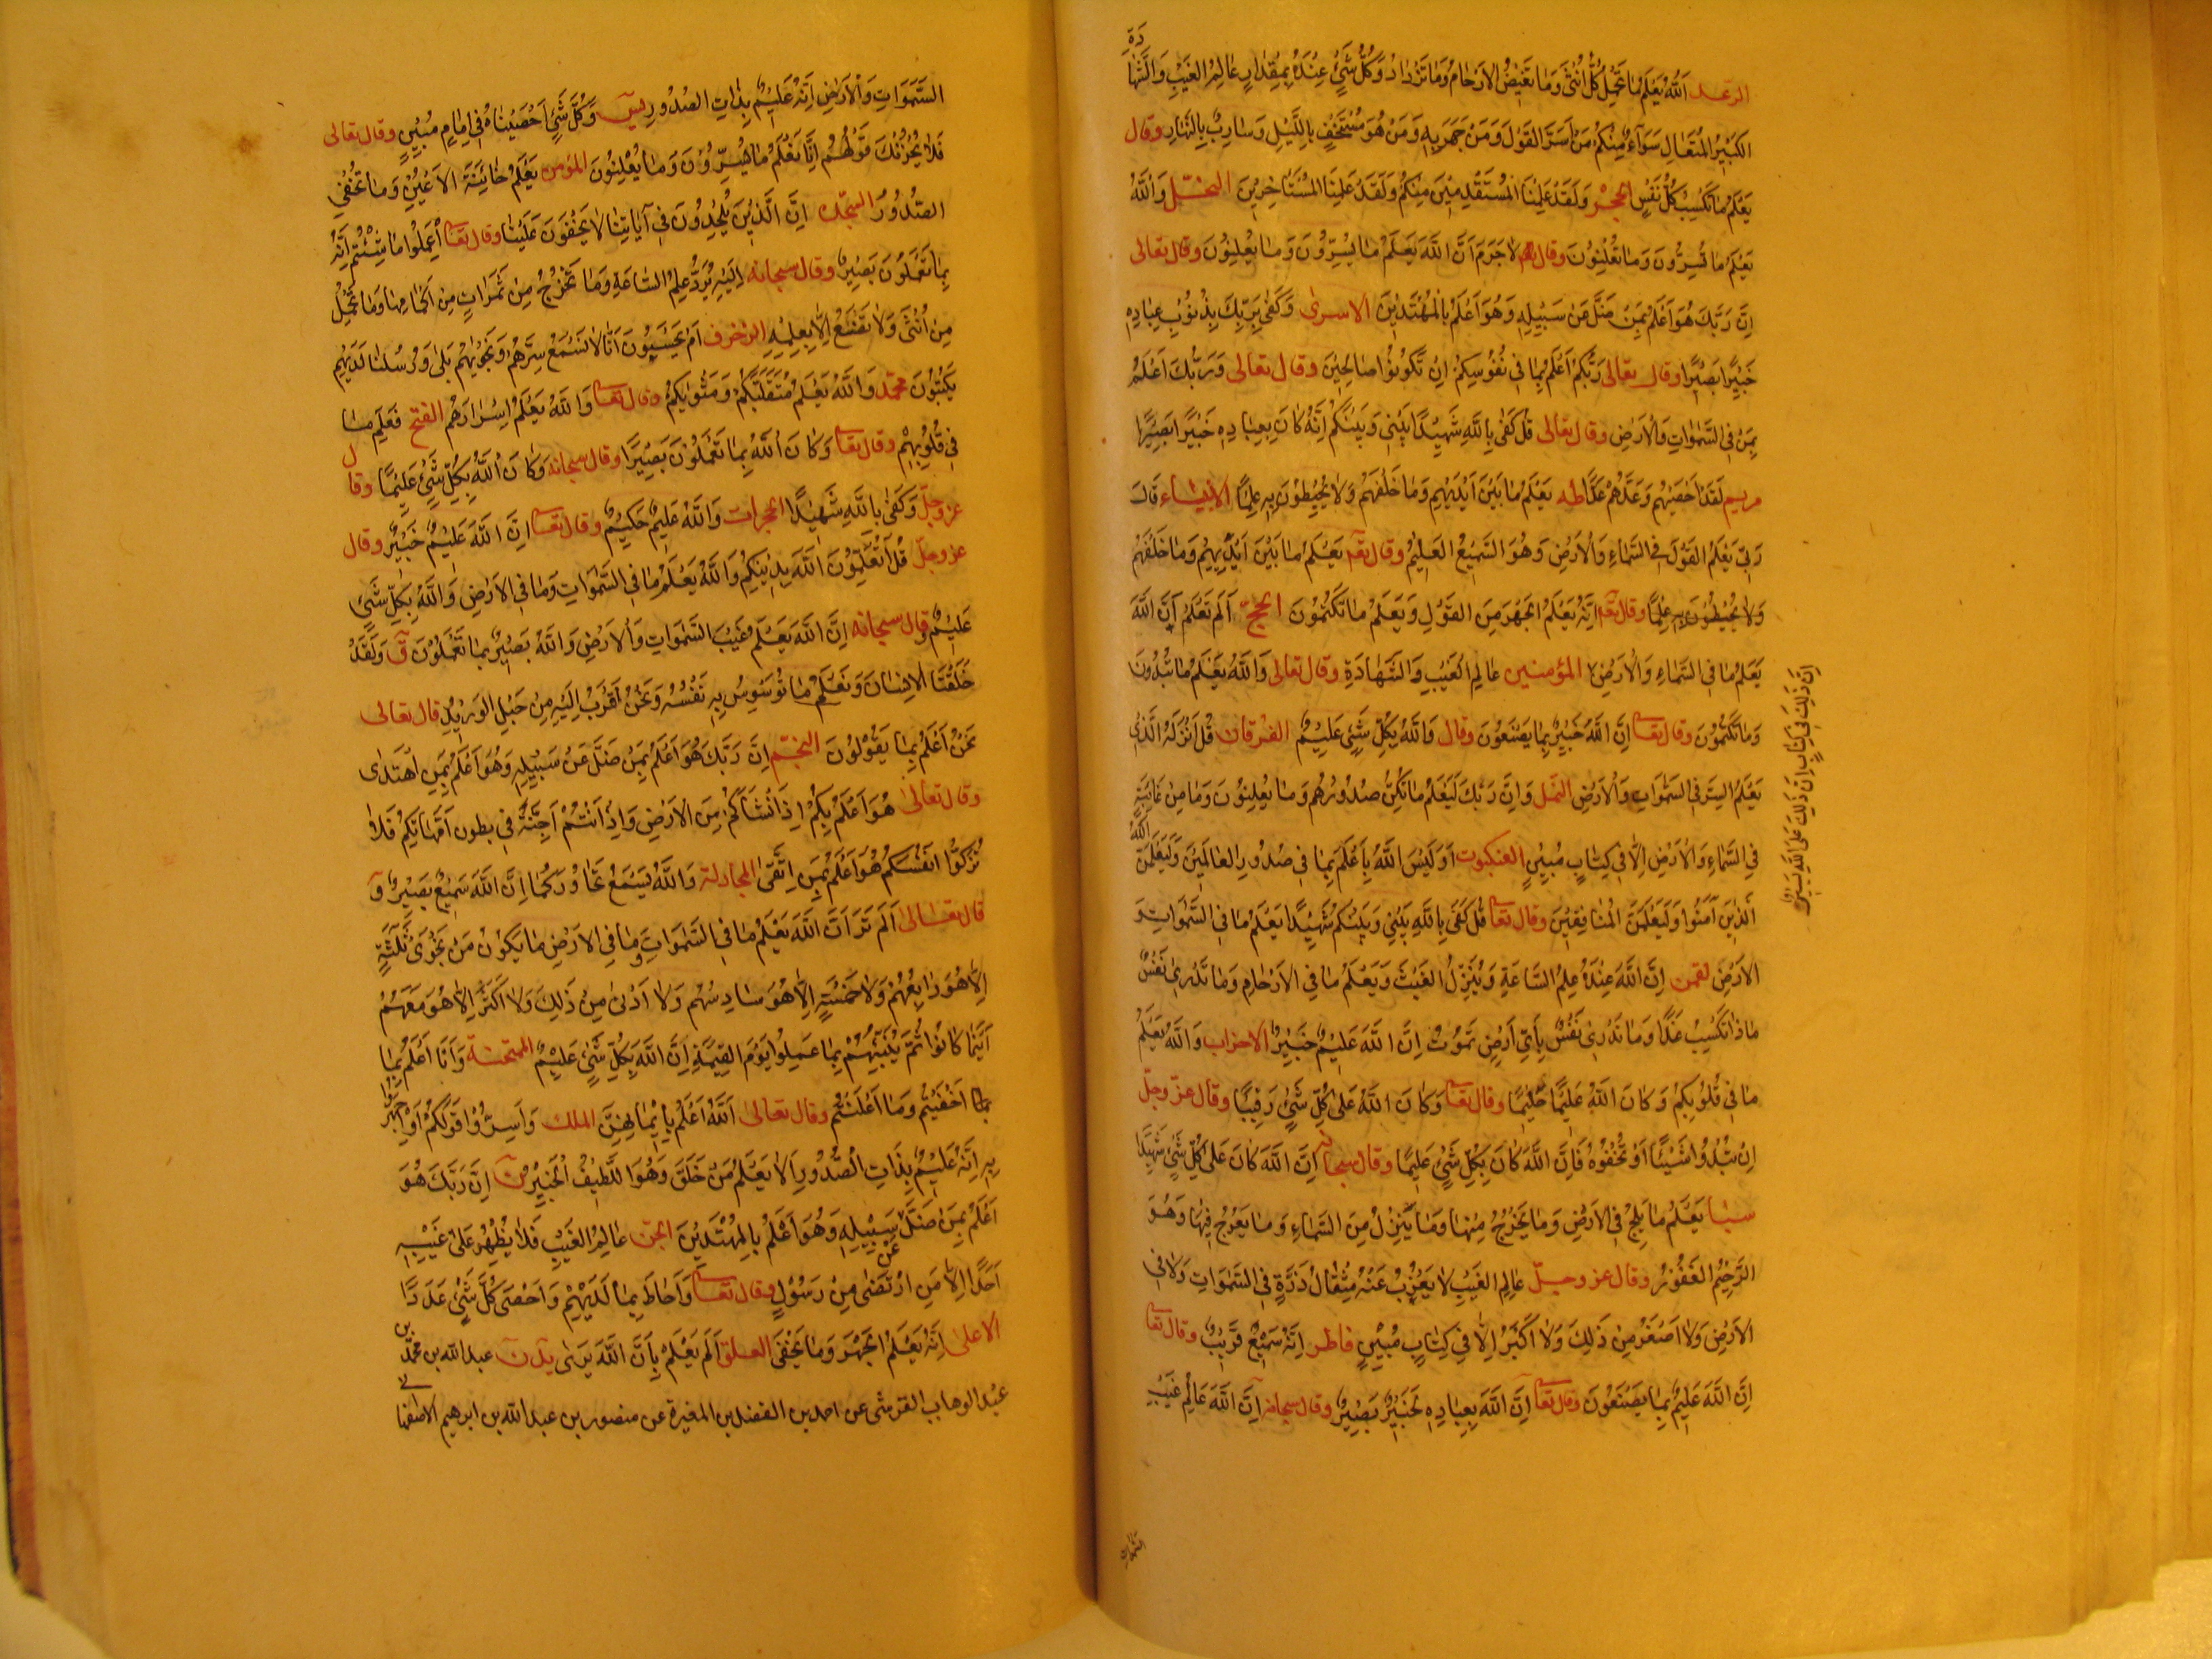 دَةِ
الرعد اَللّٰهُ يَعْلَمُ مَا تَحْمِلُ كُلُّ اُنْثٰى وَمَا تَغِيْضُ الاَرْحَامُ وَمَا تَزْدَادُ وَكُلُّ شَيْءٍ عِنْدَهُ بِمِقْدَارٍ عَالِمُ الغَيْبِ وَالشَّهَا
الكَبِيْرُ المُتَعَالِ سَوَآءٌ مِنْكُمْ مَنْ اَسَرَّ القَوْلَ وَمَنْ جَهَرَ بِهِ وَمَنْ هُوَ مُسْتَخْفٍ بِاللَّيْلِ وَسَارِبٌ بِالنَّهَارِ وقال
يَعْلَمُ مَا تَكْسِبُ كُلُّ نَفْسٍ الحجر وَلَقَدْ عَلِمْنَا المُسْتَقْدِمِيْنَ مِنْكُمْ وَلَقَدْ عَلِمْنَا المُسْتَاْخِرِيْنَ النحل وَاللّٰهُ
يَعْلَمُ مَا تُسِرُّونَ وَمَا تُعْلِنُوْنَ وقال تعه لاَ جَرَمَ اَنَّ اللّٰهَ يَعْلَمُ مَا يُسِرُّوْنَ وَمَا يُعْلِنُوْنَ وقال تعالى
اِنَّ رَبَّكَ هُوَ اَعْلَمُ بِمَنْ ضَلَّ عَنْ سَبِيْلِهِ وَهُوَ اَعْلَمُ بِالمُهْتَدِيْنَ الاسرى وَكَفٰى بِرَبِّكَ بِذُنُوْبِ عِبَادِهِ
خَبِيْرًا بَصِيْرًا وقال تعالى رَبُّكُمْ اَعْلَمُ بِمَا فِي نُفُوْسِكُمْ اِنْ تَكُوْنُوْا صَالِحِيْنَ وقال تعالى وَرَبُّكَ اَعْلَمُ
بِمَنْ فِي السَّمٰوَاتِ وَالاَرْضِ وقال تعالى قُلْ كَفٰى بِاللّٰهِ شَهِيْدًا بَيْنِي وَبَيْنَكُمْ اِنَّهُ كَانَ بِعِبَادِهِ خَبِيْرًا بَصِيْرًا
مريم لَقَدْ اَحْصٰيهُمْ وَعَدَّهُمْ عَدًّا طه يَعْلَمُ مَا بَيْنَ اَيْدِيْهِمْ وَمَا خَلْفَهُمْ وَلاَ يُحِيْطُوْنَ بِهِ عِلْمًا الانبياء قَالَ
رَبِّي يَعْلَمُ القَوْلَ فِي السَّمَاءِ وَالاَرْضِ وَهُوَ السَّمِيْعُ العَلِيْمُ وقال تعه يَعْلَمُ مَا بَيْنَ اَيْدِيْهِمْ وَمَا خَلْفَهُمْ
وَلاَ يُحِيْطُوْنَ بِهِ عِلْمًا وقال تعه اِنَّهُ يَعْلَمُ الجَهْرَ مِنَ القَوْلِ وَيَعْلَمُ مَا تَكْتُمُوْنَ الحج اَلَمْ تَعْلَمْ اَنَّ اللّٰهَ
يَعْلَمُ مَا فِي السَّمَاءِ وَالاَرْضِ المؤمنين عَالِمِ الغَيْبِ وَالشَّهَادَةِ وقال تعالى وَاللّٰهُ يَعْلَمُ مَا تُبْدُوْنَ
وَمَا تَكْتُمُوْنَ وقال تعا اِنَّ اللّٰهَ خَبِيْرٌ بِمَا يَصْنَعُوْنَ وقال وَاللّٰهُ بِكُلِّ شَيْءٍ عَلِيْمٌ الفرقان قُلْ اَنْزَلَهُ الَّذِي
يَعْلَمُ السِّرَّ فِي السَّمٰوَاتِ وَالاَرْضِ النمل وَاِنَّ رَبَّكَ لَيَعْلَمُ مَا تُكِنُّ صُدُوْرُهُمْ وَمَا يُعْلِنُوْنَ وَمَا مِنْ غَائِبَةٍ
فِي السَّمَاءِ وَالاَرْضِ اِلاَّ فِي كِتَابٍ مُبِيْنٍ العنكبوت اَوَلَيْسَ اللّٰهُ بِاَعْلَمَ بِمَا فِي صُدُورِ العَالَمِيْنَ وَلَيَعْلَمَنَّ اللّٰهُ
الَّذِيْنَ آمَنُوا وَلَيَعْلَمَنَّ المُنَافِقِيْنَ وقال تعا قُلْ كَفٰى بِاللّٰهِ بَيْنِي وَبَيْنَكُمْ شَهِيْدًا يَعْلَمُ مَا فِي السَّمٰوَاتِ وَ
الاَرْضِ لقمن اِنَّ اللّٰهَ عِنْدَهُ عِلْمُ السَّاعَةِ وَيُنَزِّلُ الغَيْثَ وَيَعْلَمُ مَا فِي الاَرْحَامِ وَمَا تَدْرِي نَفْسٌ
مَاذَا تَكْسِبُ غَدًا وَمَا تَدْرِي نَفْسٌ بِاَيِّ اَرْضٍ تَمُوْتُ اِنَّ اللّٰهَ عَلِيْمٌ خَبِيْرٌ الاحزاب وَاللّٰهُ يَعْلَمُ
مَا فِي قُلُوْبِكُمْ وَكَانَ اللّٰهُ عَلِيْمًا حَلِيْمًا وقال تعا وَكَانَ اللّٰهُ عَلٰى كُلِّ شَيْءٍ رَقِيْبًا وقال عز وجل
اِنْ تُبْدُوْا شَيْئًا اَوْ تُخْفُوْهُ فَاِنَّ اللّٰهَ كَانَ بِكُلِّ شَيْءٍ عَلِيْمًا وقال سبحانه اِنَّ اللّٰهَ كَانَ عَلٰى كُلِّ شَيْءٍ شَهِيْدًا
سبا يَعْلَمُ مَا يَلِجُ فِي الاَرْضِ وَمَا يَخْرُجُ مِنْهَا وَمَا يَنْزِلُ مِنَ السَّمَاءِ وَمَا يَعْرُجُ فِيْهَا وَهُوَ
الرَّحِيْمُ الغَفُوْرُ وقال عز وجل عَالِمِ الغَيْبِ لاَ يَعْزُبُ عَنْهُ مِثْقَالُ ذَرَّةٍ فِي السَّمٰوَاتِ وَلاَ فِي
الاَرْضِ وَلاَ اَصْغَرُ مِنْ ذٰلِكَ وَلاَ اَكْبَرُ اِلاَّ فِي كِتَابٍ مُبِيْنٍ فاطر اِنَّهُ سَمِيْعٌ قَرِيْبٌ وقال تعا
اِنَّ اللّٰهَ عَلِيْمٌ بِمَا يَصْنَعُوْنَ وقال تعا اِنَّ اللّٰهَ بِعِبَادِهِ لَخَبِيْرٌ بَصِيْرٌ وقال سبحانه اِنَّ اللّٰهَ عَالِمُ غَيْبِ
السَّمٰوات
اِنَّ ذٰلِكَ فِي كِتَابٍ اِنَّ ذٰلِكَ عَلَى اللّٰهِ يَسِيْرٌ
السَّمَوَاتِ وَالاَرْضِ اِنَّهُ عَلِيْمٌ بِذَاتِ الصُّدُورِ يس وَكُلَّ شَيْءٍ اَحْصَيْنَاهُ فِي اِمَامٍ مُبِيْنٍ وقال تعالى
فَلاَ يَحْزُنْكَ قَوْلُهُمْ اِنَّا نَعْلَمُ مَا يُسِرُّوْنَ وَمَا يُعْلِنُوْنَ المؤمن يَعْلَمُ خَائِنَةَ الاَعْيُنِ وَمَا تُخْفِي
الصُّدُورُ السجدة اِنَّ الَّذِيْنَ يُلْحِدُوْنَ فِي آيَاتِنَا لاَ يَخْفَوْنَ عَلَيْنَا وقال تعا اِعْمَلُوا مَا شِئْتُمْ اِنَّهُ
بِمَا تَعْمَلُوْنَ بَصِيْرٌ وقال سبحانه اِلَيْهِ يُرَدُّ عِلْمُ السَّاعَةِ وَمَا تَخْرُجُ مِنْ ثَمَرَاتٍ مِنْ اَكْمَامِهَا وَمَا تَحْمِلُ
مِنْ اُنْثٰى وَلاَ تَضَعُ اِلاَّ بِعِلْمِهِ الزخرف اَمْ يَحْسَبُوْنَ اَنَّا لاَ نَسْمَعُ سِرَّهُمْ وَنَجْوٰيهُمْ بَلٰى وَرُسُلُنَا لَدَيْهِمْ
يَكْتُبُوْنَ محمد وَاللّٰهُ يَعْلَمُ مُتَقَلَّبَكُمْ وَمَثْوٰيكُمْ وقال تعا وَاللّٰهُ يَعْلَمُ اِسْرَارَهُمْ الفتح فَعَلِمَ مَا
فِي قُلُوْبِهِمْ وقال تعا وَكَانَ اللّٰهُ بِمَا تَعْمَلُوْنَ بَصِيْرًا وقال سبحانه وَكَانَ اللّٰهُ بِكُلِّ شَيْءٍ عَلِيْمًا وقال
عز وجل وَكَفٰى بِاللّٰهِ شَهِيْدًا الحجرات وَاللّٰهُ عَلِيْمٌ حَكِيْمٌ وقال تعا اِنَّ اللّٰهَ عَلِيْمٌ خَبِيْرٌ وقال
عز وجل قُلْ اَتُعَلِّمُوْنَ اللّٰهَ بِدِيْنِكُمْ وَاللّٰهُ يَعْلَمُ مَا فِي السَّمٰوَاتِ وَمَا فِي الاَرْضِ وَاللّٰهُ بِكُلِّ شَيْءٍ
عَلِيْمٌ وقال سبحانه اِنَّ اللّٰهَ يَعْلَمُ غَيْبَ السَّمٰوَاتِ وَالاَرْضِ وَاللّٰهُ بَصِيْرٌ بِمَا تَعْمَلُوْنَ ق وَلَقَدْ
خَلَقْنَا الاِنْسَانَ وَنَعْلَمُ مَا تُوَسْوِسُ بِهِ نَفْسُهُ وَنَحْنُ اَقْرَبُ اِلَيْهِ مِنْ حَبْلِ الوَرِيْدِ قال تعالى
نَحْنُ اَعْلَمُ بِمَا يَقُوْلُوْنَ النجم اِنَّ رَبَّكَ هُوَ اَعْلَمُ بِمَنْ ضَلَّ عَنْ سَبِيْلِهِ وَهُوَ اَعْلَمُ بِمَنِ اهْتَدٰى
وقال تعالى هُوَ اَعْلَمُ بِكُمْ اِذْ اَنْشَاَكُمْ مِنَ الاَرْضِ وَاِذْ اَنْتُمْ اَجِنَّةٌ فِي بطون اُمَّهَاتِكُمْ فَلاَ
تُزَكُّوا اَنْفُسَكُمْ هُوَ اَعْلَمُ بِمَنِ اتَّقٰى المجادلة وَاللّٰهُ يَسْمَعُ تَحَاوُرَكُمَا اِنَّ اللّٰهَ سَمِيْعٌ بَصِيْرٌ و
قال تعالى اَلَمْ تَرَ اَنَّ اللّٰهَ يَعْلَمُ مَا فِي السَّمٰوَاتِ وَمَا فِي الاَرْضِ مَا يَكُوْنُ مِنْ نَجْوٰى ثَلٰثَةٍ
اِلاَّ هُوَ رَابِعُهُمْ وَلاَ خَمْسَةٍ اِلاَّ هُوَ سَادِسُهُمْ وَلاَ اَدْنٰى مِنْ ذٰلِكَ وَلاَ اَكْثَرَ اِلاَّ هُوَ مَعَهُمْ
اَيْنَمَا كَانُوا ثُمَّ يُنَبِّئُهُمْ بِمَا عَمِلُوا يَوْمَ القِيٰمَةِ اِنَّ اللّٰهَ بِكُلِّ شَيْءٍ عَلِيْمٌ الممتحنة وَاَنَا اَعْلَمُ بِمَا
اَخْفَيْتُمْ وَمَا اَعْلَنْتُمْ وقال تعالى اَللّٰهُ اَعْلَمُ بِاِيْمَانِهِنَّ الملك وَاَسِرُّوْا قَوْلَكُمْ اَوِ اجْهَرُوْا
بِهِ اِنَّهُ عَلِيْمٌ بِذَاتِ الصُّدُورِ اَلاَ يَعْلَمُ مَنْ خَلَقَ وَهُوَ اللَّطِيْفُ الْخَبِيْرُ ن اِنَّ رَبَّكَ هُوَ
اَعْلَمُ بِمَنْ ضَلَّ عَنْ سَبِيْلِهِ وَهُوَ اَعْلَمُ بِالمُهْتَدِيْنَ الجن عَالِمُ الغَيْبِ فَلاَ يُظْهِرُ عَلٰى غَيْبِهِ
اَحَدًا اِلاَّ مَنِ ارْتَضٰى مِنْ رَسُوْلٍ وقال تعا وَاَحَاطَ بِمَا لَدَيْهِمْ وَاَحْصٰى كُلَّ شَيْءٍ عَدَدًا
الاعلى اِنَّهُ يَعْلَمُ الجَهْرَ وَمَا يَخْفٰى العلق اَلَمْ يَعْلَمْ بِاَنَّ اللّٰهَ يَرٰى يد ن عبدالله بن محمد بن
عبدالوهاب القرشى عن احمد بن الفضل بن المغيرة عن منصور بن عبدالله بن ابرهيم الاصفها